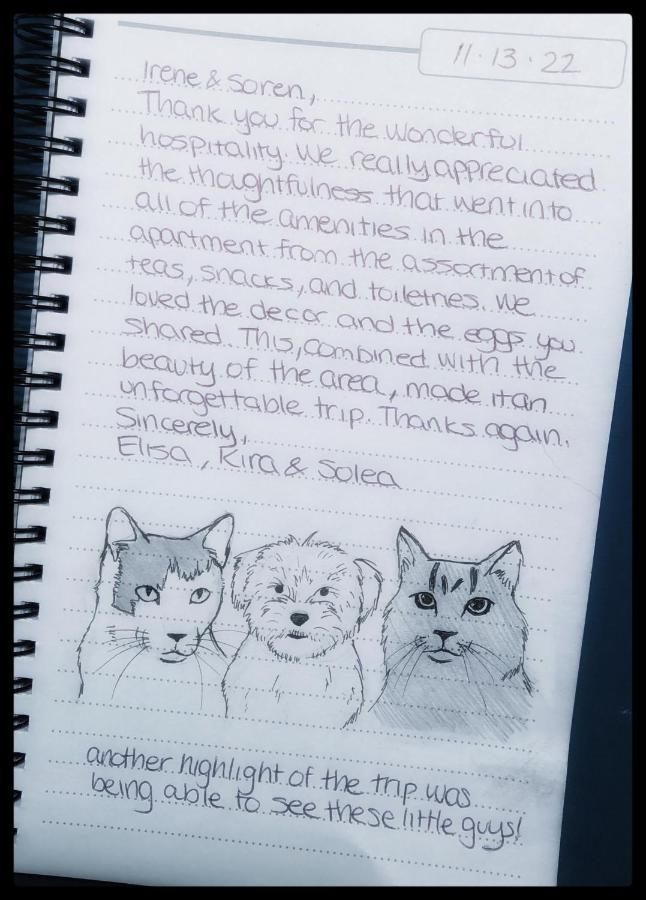 11·13·22
Irene & Soren,
Thank you for the wonderful
hospitality. We really appreciated
the thoughtfulness that went into
all of the amenities in the
apartment from the assortment of
teas, snacks, and toiletries. We
loved the decor and the eggs you
shared. This, combined with the
beauty of the area, made it an
unforgettable trip. Thanks again.
Sincerely,
Elisa, Kira & Solea
another highlight of the trip was
being able to see these little guys!